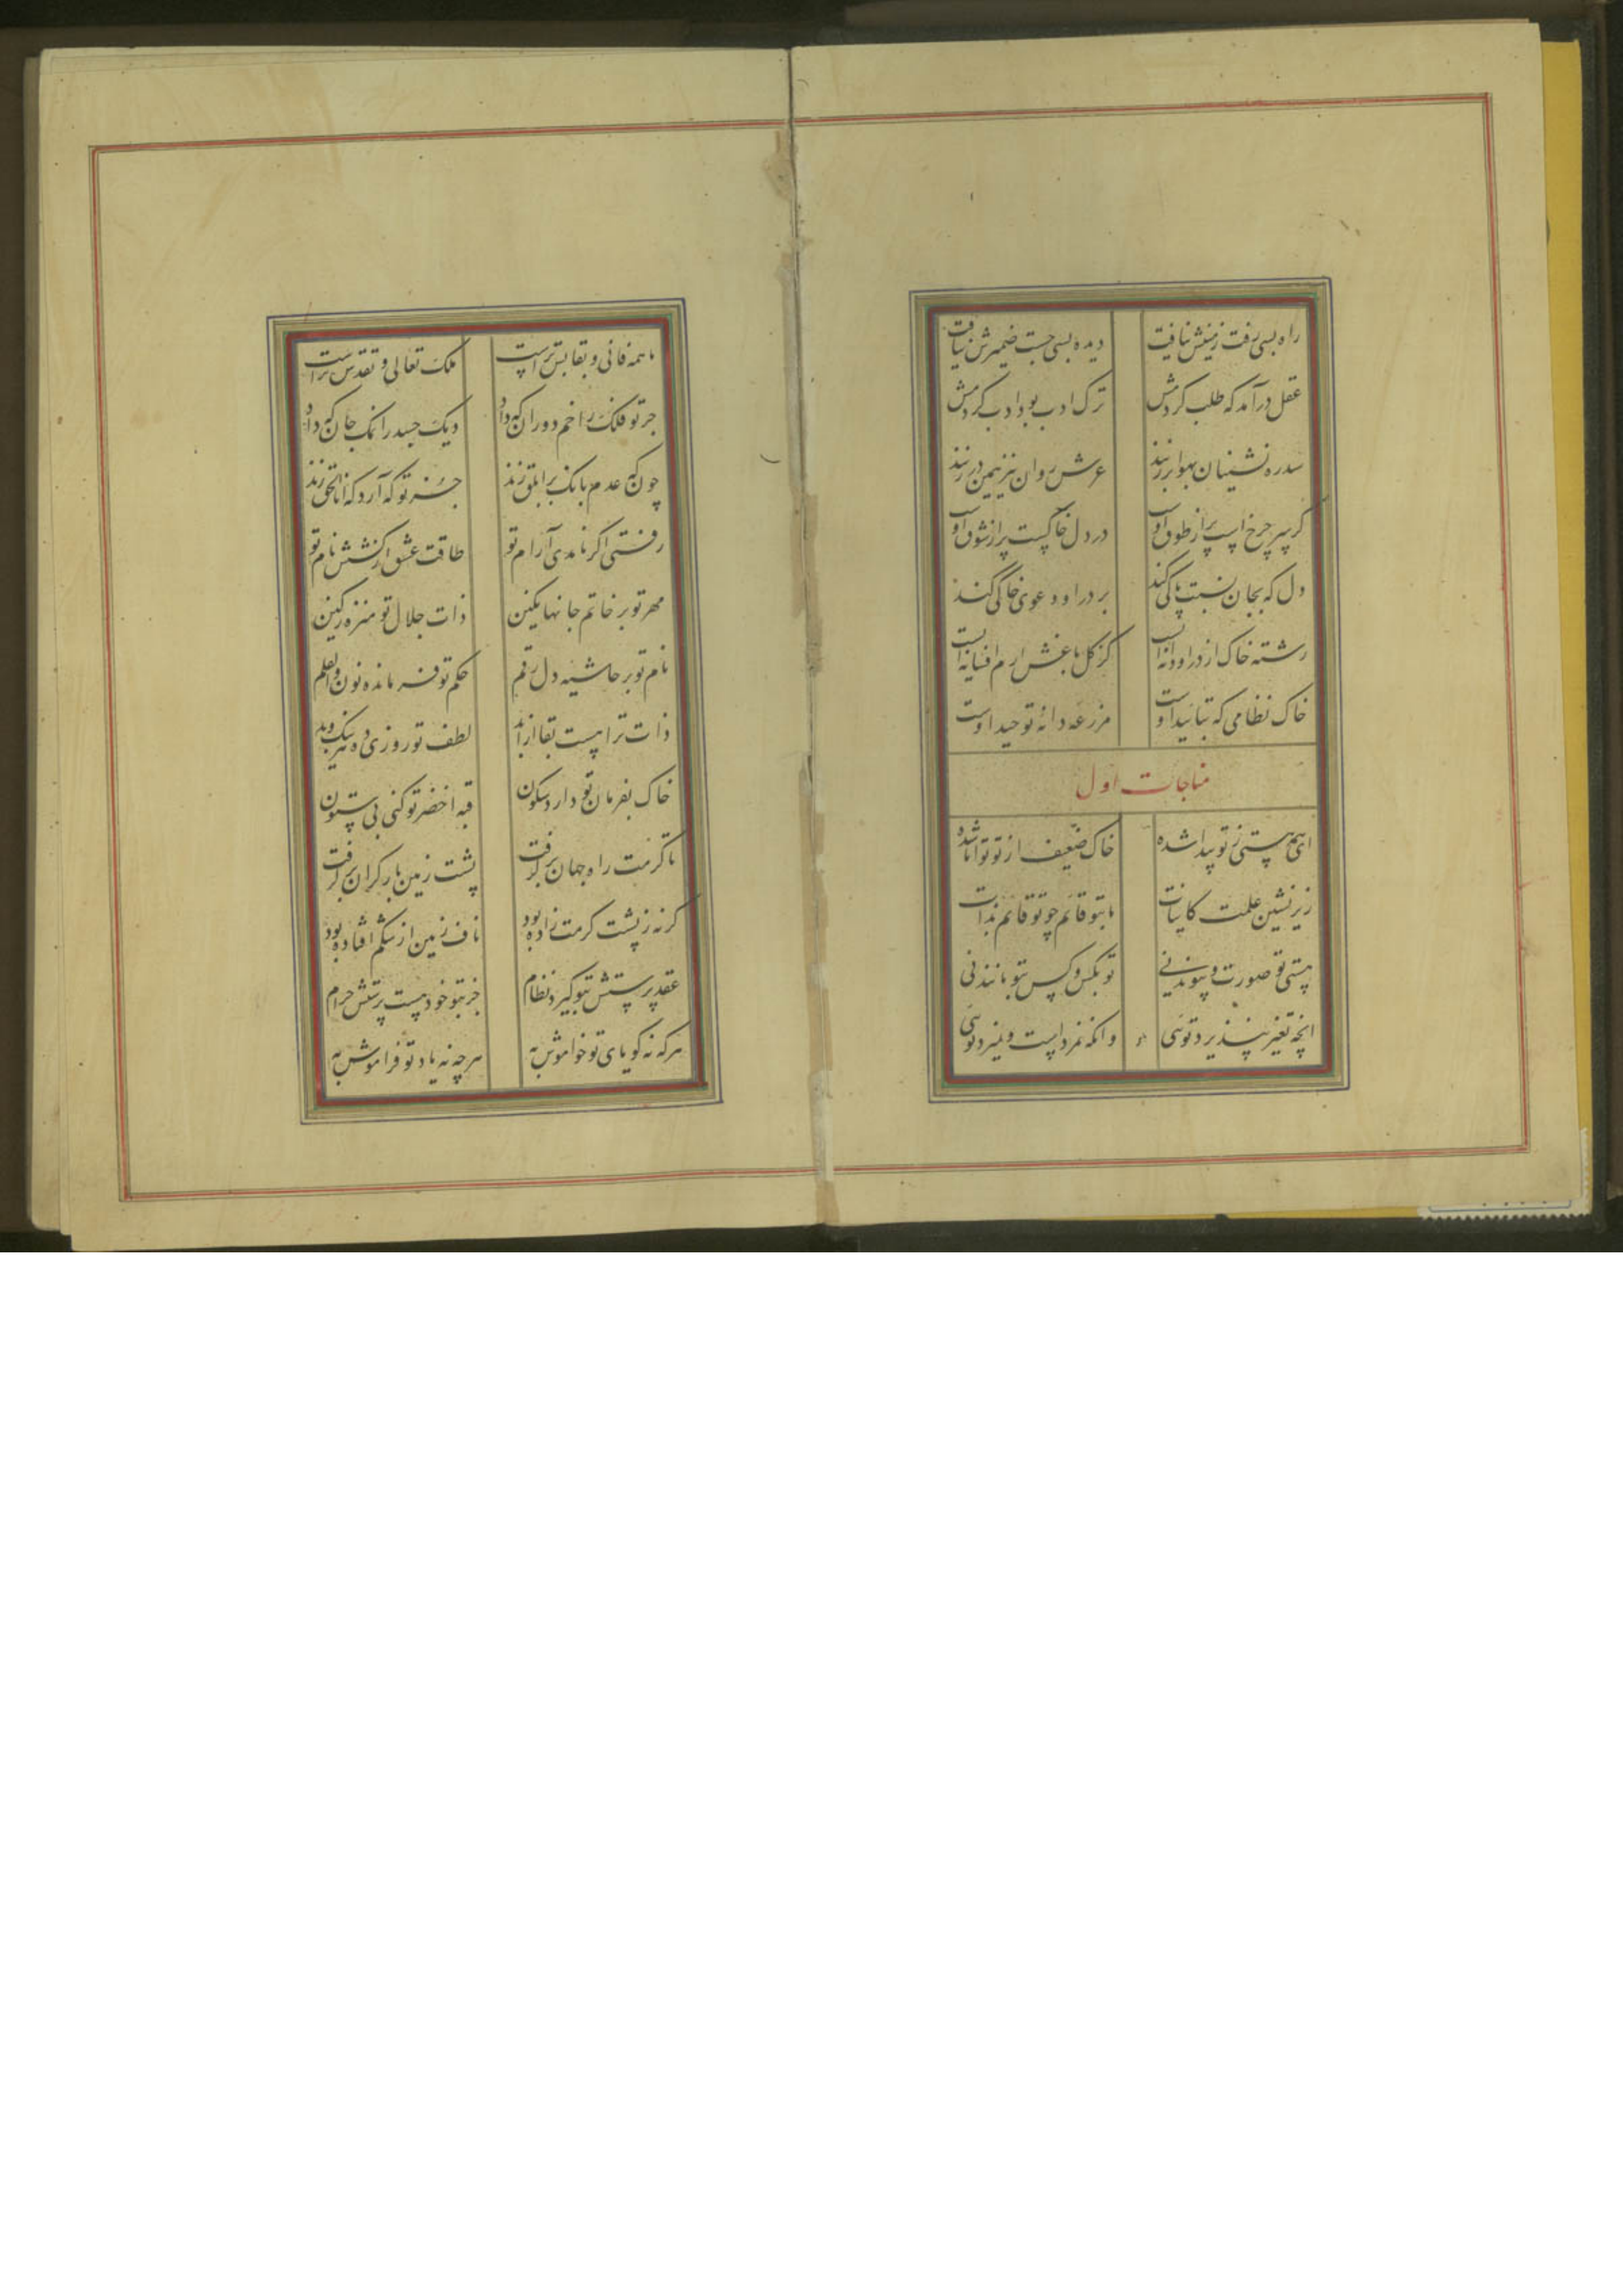 راه بسی رفت زمینش نیافت دیده بسی جست ضمیرش نیافت
عقل درآمد که طلب کردمش ترک ادب بود ادب کردمش
سدره نشینان بهوا برزنند عرش روان نیز همین در زنند
کر سر چرخ است پر از طوق اوست در دل خاکست پر از شوق اوست
دل که بجان نسبت پاکی کند بر در او دعوی خاکی کند
رشته خاک از در او دانه ایست کز کل باغش ارم افسانه ایست
خاک نظامی که بتایید اوست مزرعه دانهٔ توحید اوست
مناجات اول
ای همه هستی ز تو پیدا شده خاک ضعیف از تو توانا شده
زیر نشین علمت کاینات ما بتو قائم چو تو قائم بذات
هستی تو صورت و پیوند نی تو بکس و کس بتو مانند نی
انچه تغیر نپذیرد توئی وانکه نمردست و نمیرد توئی
ما همه فانی و بقا بس تراست ملک تعالی و تقدس تراست
جز تو فلک را خم دوران که داد دیک جسد را نمک جان که داد
چون که عدم بانک بر ابلق زند جز تو که آرد که انا الحق زند
رفتی اکر نامدی آرام تو طاقت عشق از کشش نام تو
مهر تو بر خاتم جانها نکین ذات جلال تو منزه زکین
نام تو بر حاشیه دل رقم حکم تو فرمانده نون والقلم
ذات تراهست بقا از ابد لطف تو روزی ده هر نیک و بد
خاک بفرمان تو دارد سکون قبه اخضر تو کنی بی ستون
تا کرمت راه جهان برکرفت پشت زمین بار کران برکرفت
کرنه زپشت کرمت زاده بود ناف زمین از شکم افتاده بود
عقد پرستش بتو کیرد نظام جز بتو خود هست پرستش حرام
هرکه نه کویای تو خواموش به هرچه نه یاد تو فراموش به